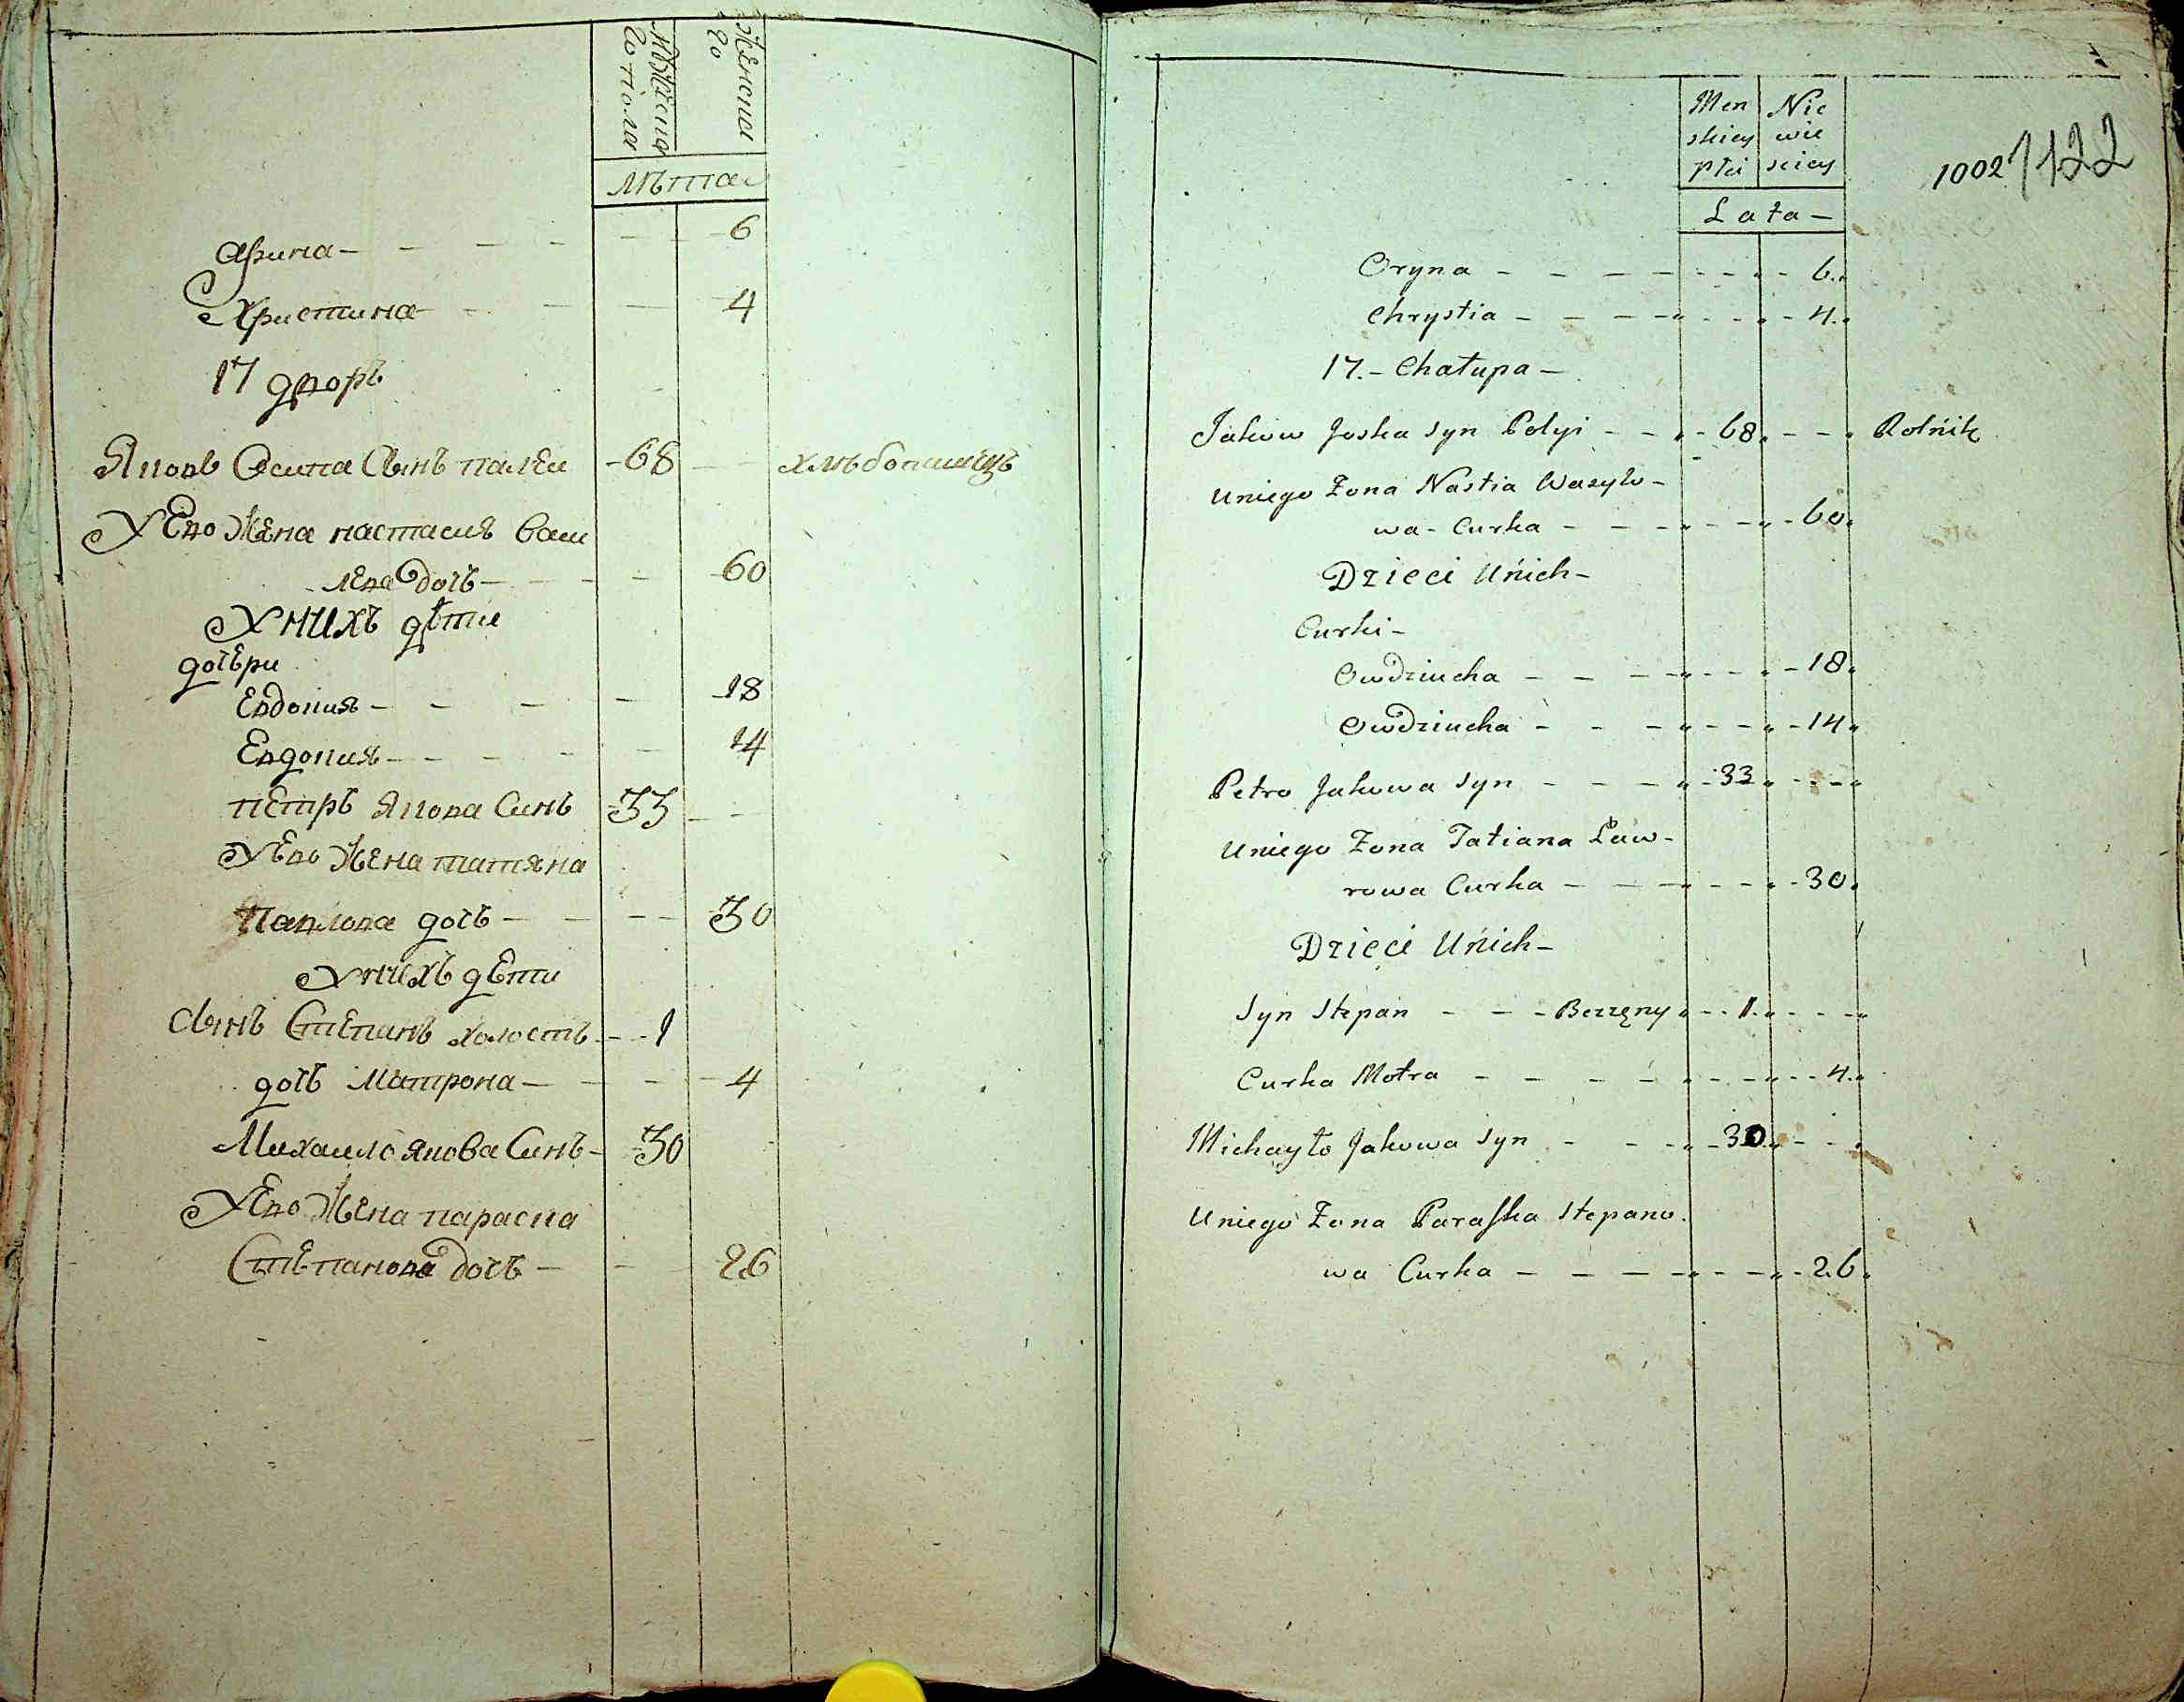 Мужеска
го пола
Женска
го
Лѣта
Арина — 6
Христина — 4
17 дворъ
Яковъ Осипа Сынъ палѣи 68 хлѣбопашецъ
У Его Жена настасия васи
лева дочь — 60
У нихъ дѣти
дочери
Евдокия — 18
Евдокия — 14
пЕтръ Якова Синъ 33
У Его Жена татяна
Павлова дочь — 30
У нихъ дѣти
Сынъ Степанъ холостъ 1
дочь Матрона — 4
Михаило Якова Синъ — 30
У Его Жена параска
Степанова дочь — 26
Men Nie
skiey wie
płci sciey
1002 1122
Lata —
Oryna — 6.
Chrystia — 4.
17. — Chałupa —
Jakow Joska syn Połyi — 68 Rolńik
Uniego Zona Nastia Wasyło-
wa - Curka — 60.
Dzieci Uńich —
Curki —
Owdziucha — 18.
Owdziucha — 14.
Petro Jakowa syn — 33
Uniego Zona Tatiana Ław-
rowa Curka — 30.
Dzieci Uńich —
Syn Stepan — Bezzęny 1.
Curka Motra — 4.
Michayło Jakowa syn — 30
Uniego Zona Paraska Stepano.
wa Curka — 26.